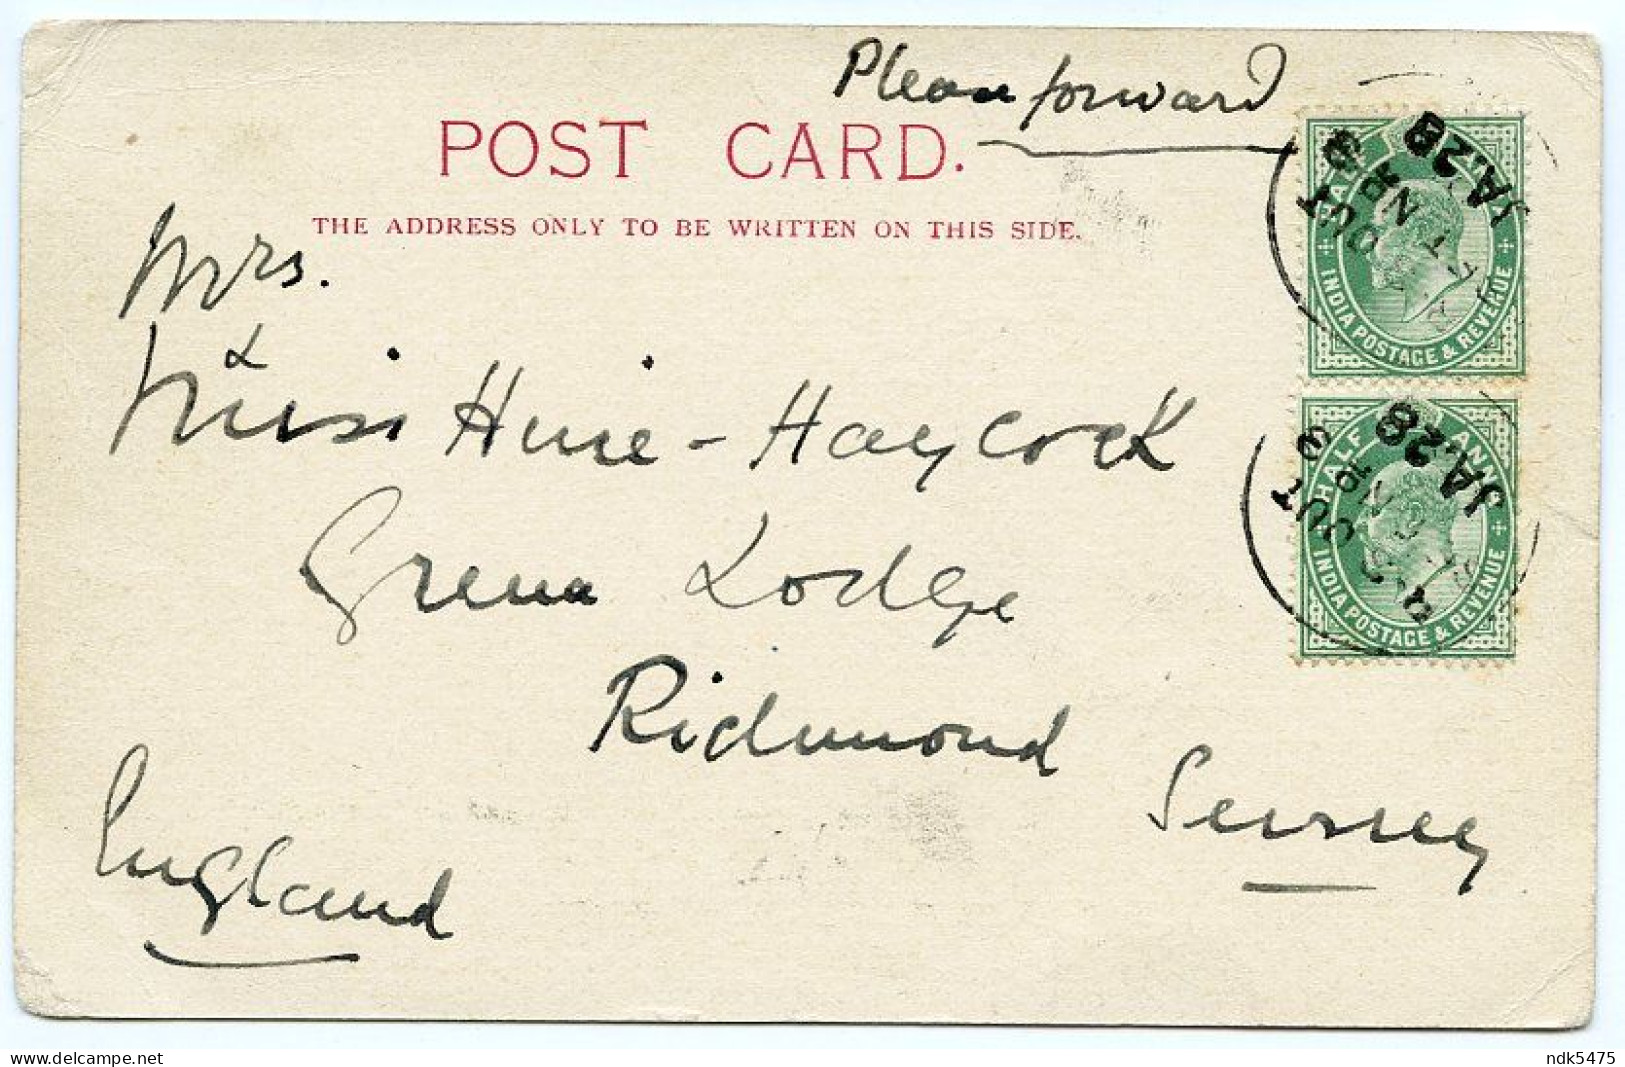 Please forward
POST CARD.
THE ADDRESS ONLY TO BE WRITTEN ON THIS SIDE.
Mrs.
&
Miss Huie-Haycock
Grena Lodge
Richmond
Surrey
England
JA.28
OUT
INDIA POSTAGE & REVENUE
HALF ANNA
JA.28
OUT
INDIA POSTAGE & REVENUE
delcampe.net
ndk5475